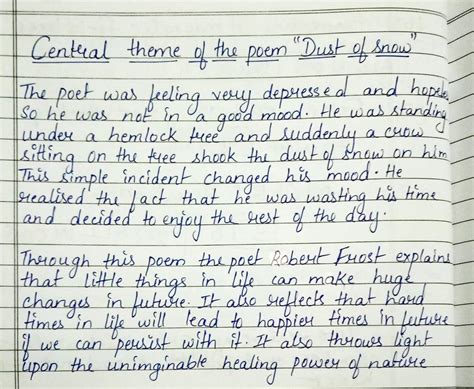 Central theme of the poem "Dust of snow"
The poet was feeling very depressed and hopeles
So he was not in a good mood. He was standing
under a hemlock tree and suddenly a crow
sitting on the tree shook the dust of snow on him
This simple incident changed his mood. He
realised the fact that he was wasting his time
and decided to enjoy the rest of the day.
Through this poem the poet Robert Frost explains
that little things in life can make huge
changes in future. It also reflects that hard
times in life will lead to happier times in future
if we can persist with it. It also throws light
upon the unimginable healing power of nature